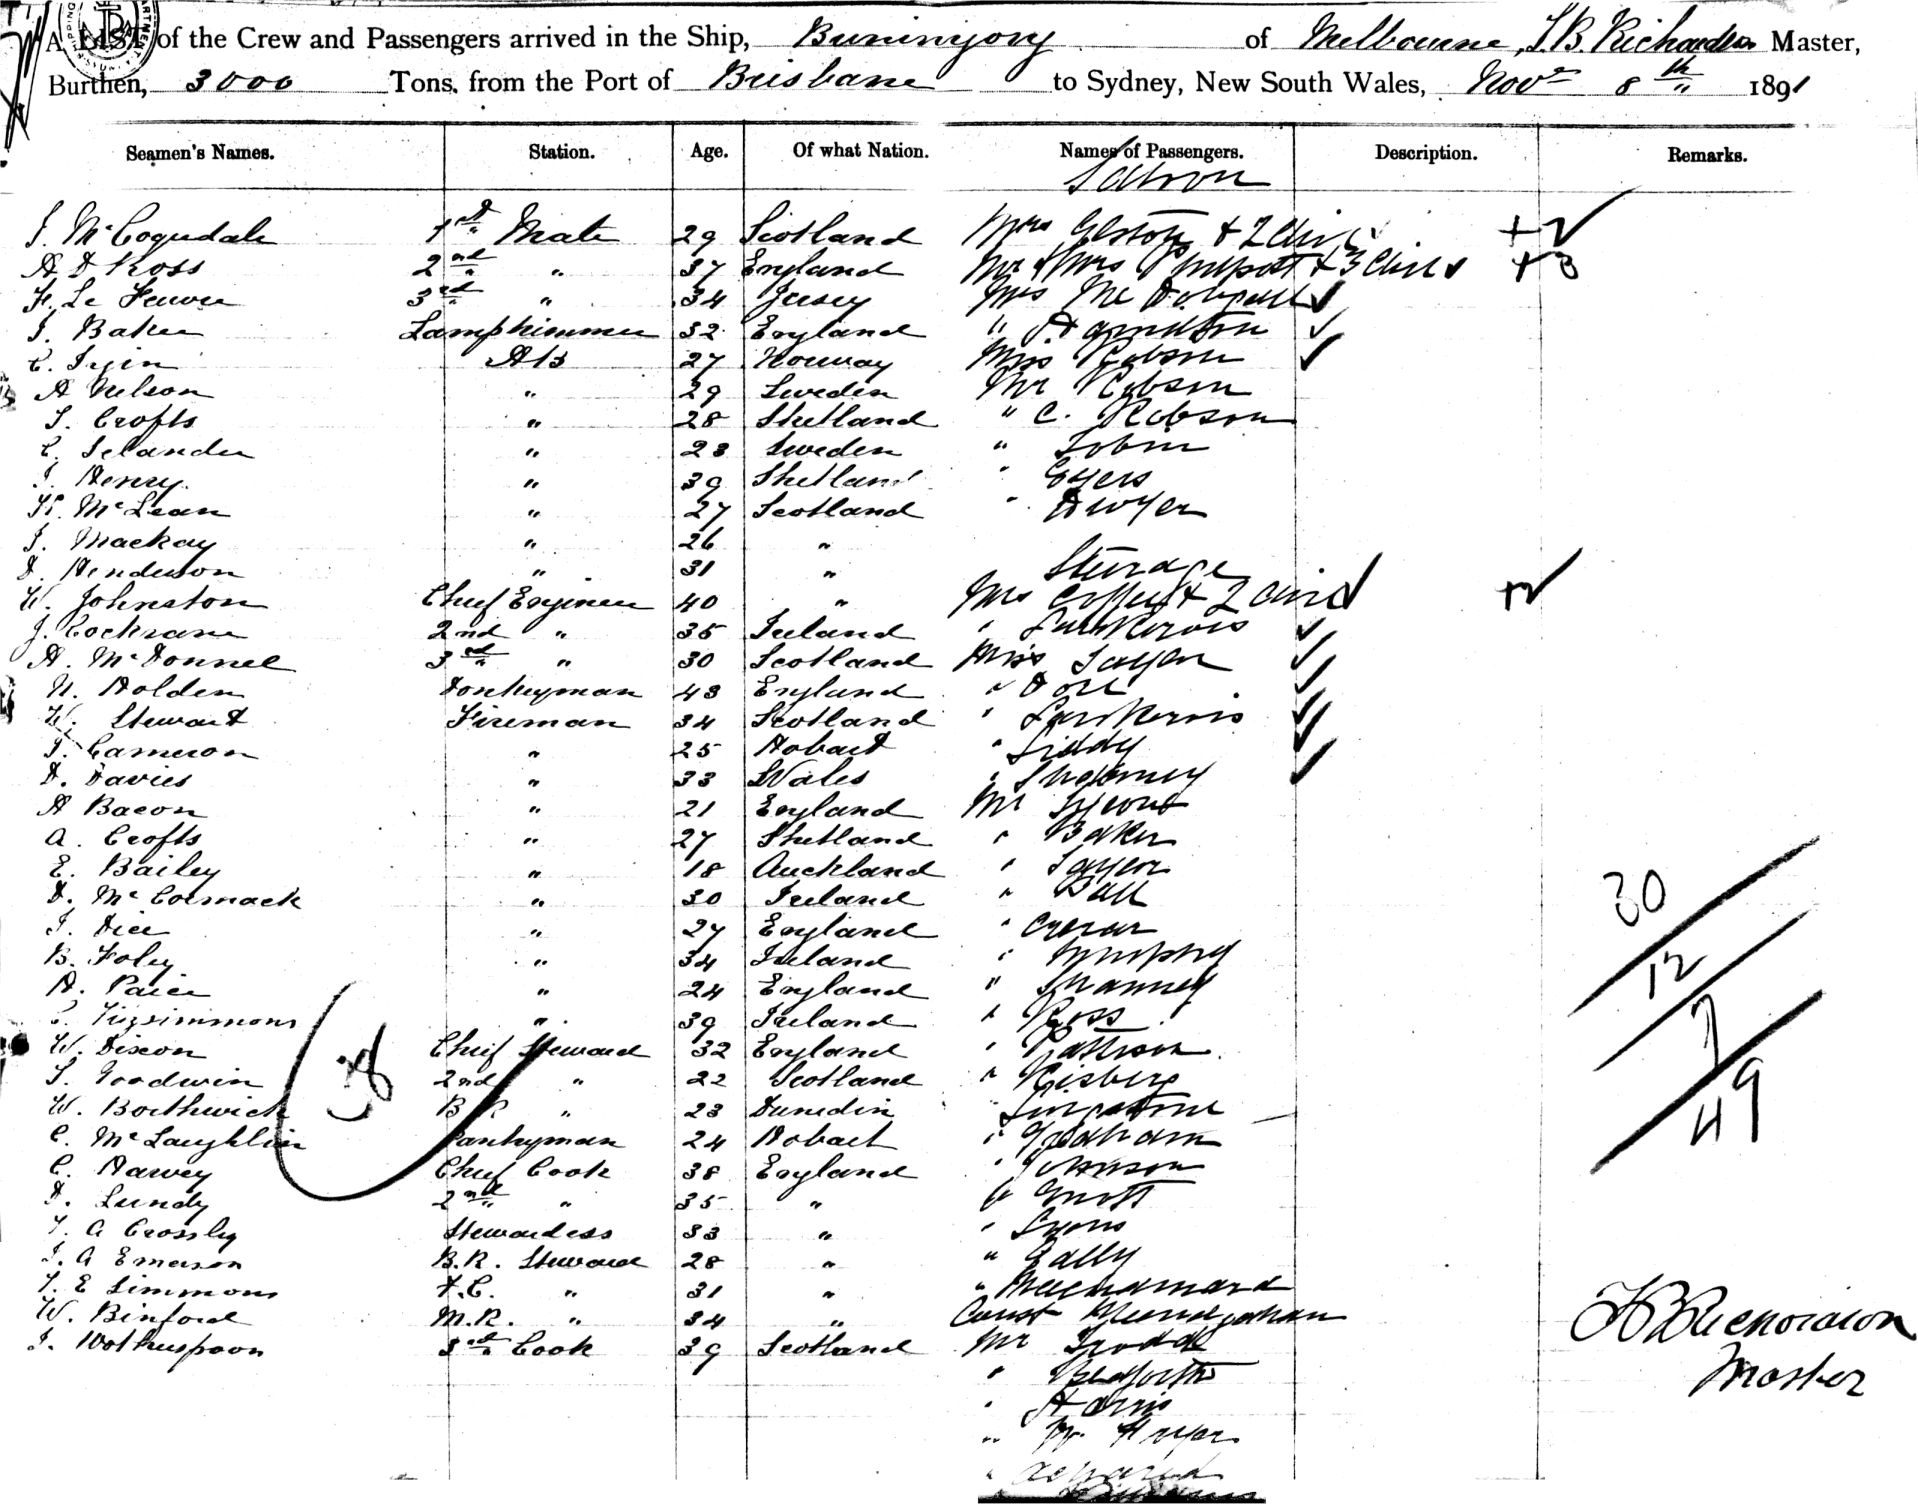 A LIST of the Crew and Passengers arrived in the Ship, Buninyong of Melbourne, Richardson Master,
Burthen, 3000 Tons, from the Port of Brisbane to Sydney, New South Wales, Novr 8th 1891
Seamen's Names. Station. Age. Of what Nation. Names of Passengers. Description. Remarks.
Saloon
J. McCoquedale 1st Mate 29 Scotland Mrs & 2 + 2
A D Ross 2nd " 37 England Mr & Mrs Philpott & 3 + 3
F. Le Feuvre 3rd " 34 Jersey Mrs Mc
J. Baker Lamptrimmer 32 England " Hamilton
C. AB 27 Norway Miss Robson
A Nelson " 29 Sweden Mr Robson
T. Crofts " 28 Shetland " C. Robson
C. Selander " 23 Sweden " Tobin
J. Henry " 39 Shetland " Eyers
H. McLean " 27 Scotland " Dwyer
J. Mackay " 26 "
D. Henderson " 31 " Steerage
W. Johnston Chief Engineer 40 " Mrs & 2
J. Cockrane 2nd " 35 Ireland "
A. McDonnel 3rd " 30 Scotland Miss
N. Holden Donkeyman 43 England "
W. Stewart Fireman 34 Scotland "
J. Cameron " 25 Hobart " Liddy
D. Davies " 33 Wales "
A Bacon " 21 England Mr
A. Crofts " 27 Shetland " Baker
E. Bailey " 18 Auckland " Taylor
D. McCormack " 30 Ireland " Ball 30
J. Dice " 27 England "
B. Foley " 34 Ireland " Murphy 12
A. Paice " 24 England "
Fitzsimmons " 39 Ireland " Ross 7
W. Dixon Chief Steward 32 England " Pattison
T. Goodwin 2nd " 22 Scotland " Risberg 49
38
W. Borthwick B R " 23 Dunedin " Livingstone
C. McLaughlin Pantryman 24 Hobart " Graham
C. Harvey Chief Cook 38 England " Johnson
D. Lundy 2nd " 35 " "
T. A Crossley Stewardess 33 " " Lyons
J. A Emerson B.R. Steward 28 " " Gally
T. E Simmons F.C. " 31 "
W. Binford M.R. " 34 " Const
J. Wotherspoon 3rd Cook 39 Scotland Mr
Richardson
Master
" Bedforth
" Harris
" W. Dwyer